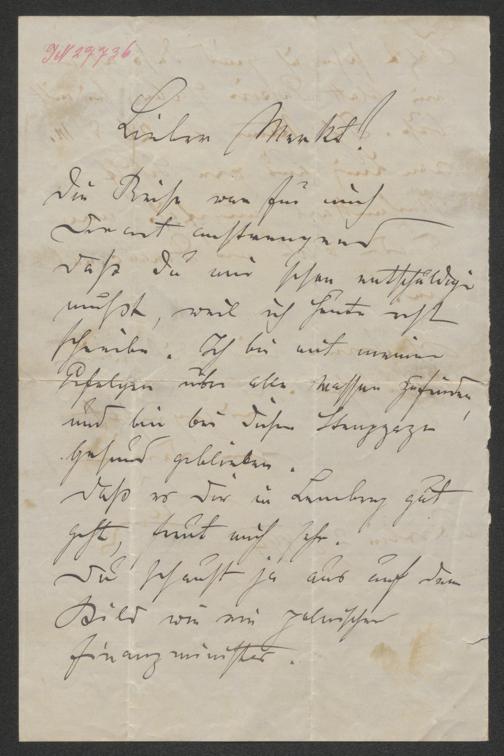 JN 29736
Lieber Merkt!
Die Reise war für mich
derart anstrengend
daß du mir schon entschuldigen
mußt, weil ich heute erst
schreibe. Ich bin mit meinen
Erfolgen über alle Massen zufrieden,
und bin bei diesen Strappazen
gesund geblieben.
Daß es dir in Lemberg gut
geht, freut mich sehr.
Du schaust ja aus auf dem
Bild wie ein polnischer
Finanzminister.